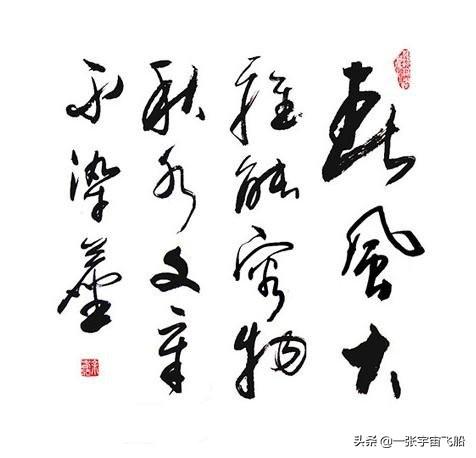 春風大
雅能容物
秋水文章
不染塵
头条 @一张宇宙飞船